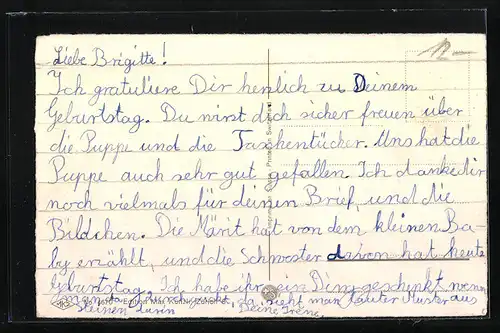 12.-
Liebe Brigitte!
Ich gratuliere Dir herzlich zu Deinem
Geburtstag. Du wirst dich sicher freuen über
die Puppe und die Taschentücher. Uns hat die
Puppe auch sehr gut gefallen. Ich danke dir
noch vielmals für deinen Brief, und die
Bildchen. Die Märit hat von dem kleinen Ba-
by erzählt, und die Schwester davon hat heute
Geburtstag. Ich habe ihr ein Ding geschenkt, wenn
man da sieht man lauter Muster aus
Steinen darin Deine Irène.